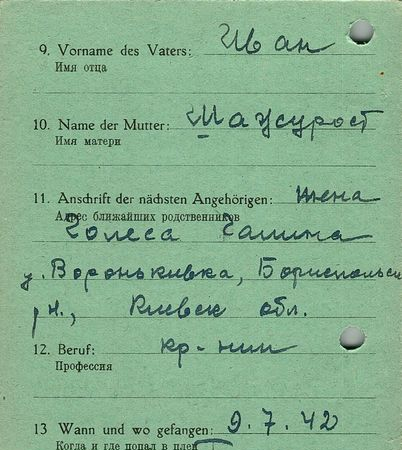 9. Vorname des Vaters: Иван
Имя отца
10. Name der Mutter:
Имя матери
11. Anschrift der nächsten Angehörigen: жена
Адрес ближайших родственников
Галина
Бориспольск
Киевск обл.
12. Beruf: кр-нин
Профессия
13 Wann und wo gefangen: 9.7.42
Когда и где попал в плен